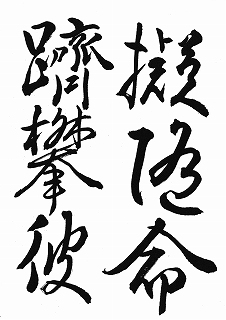 擬随命
躋攀彼